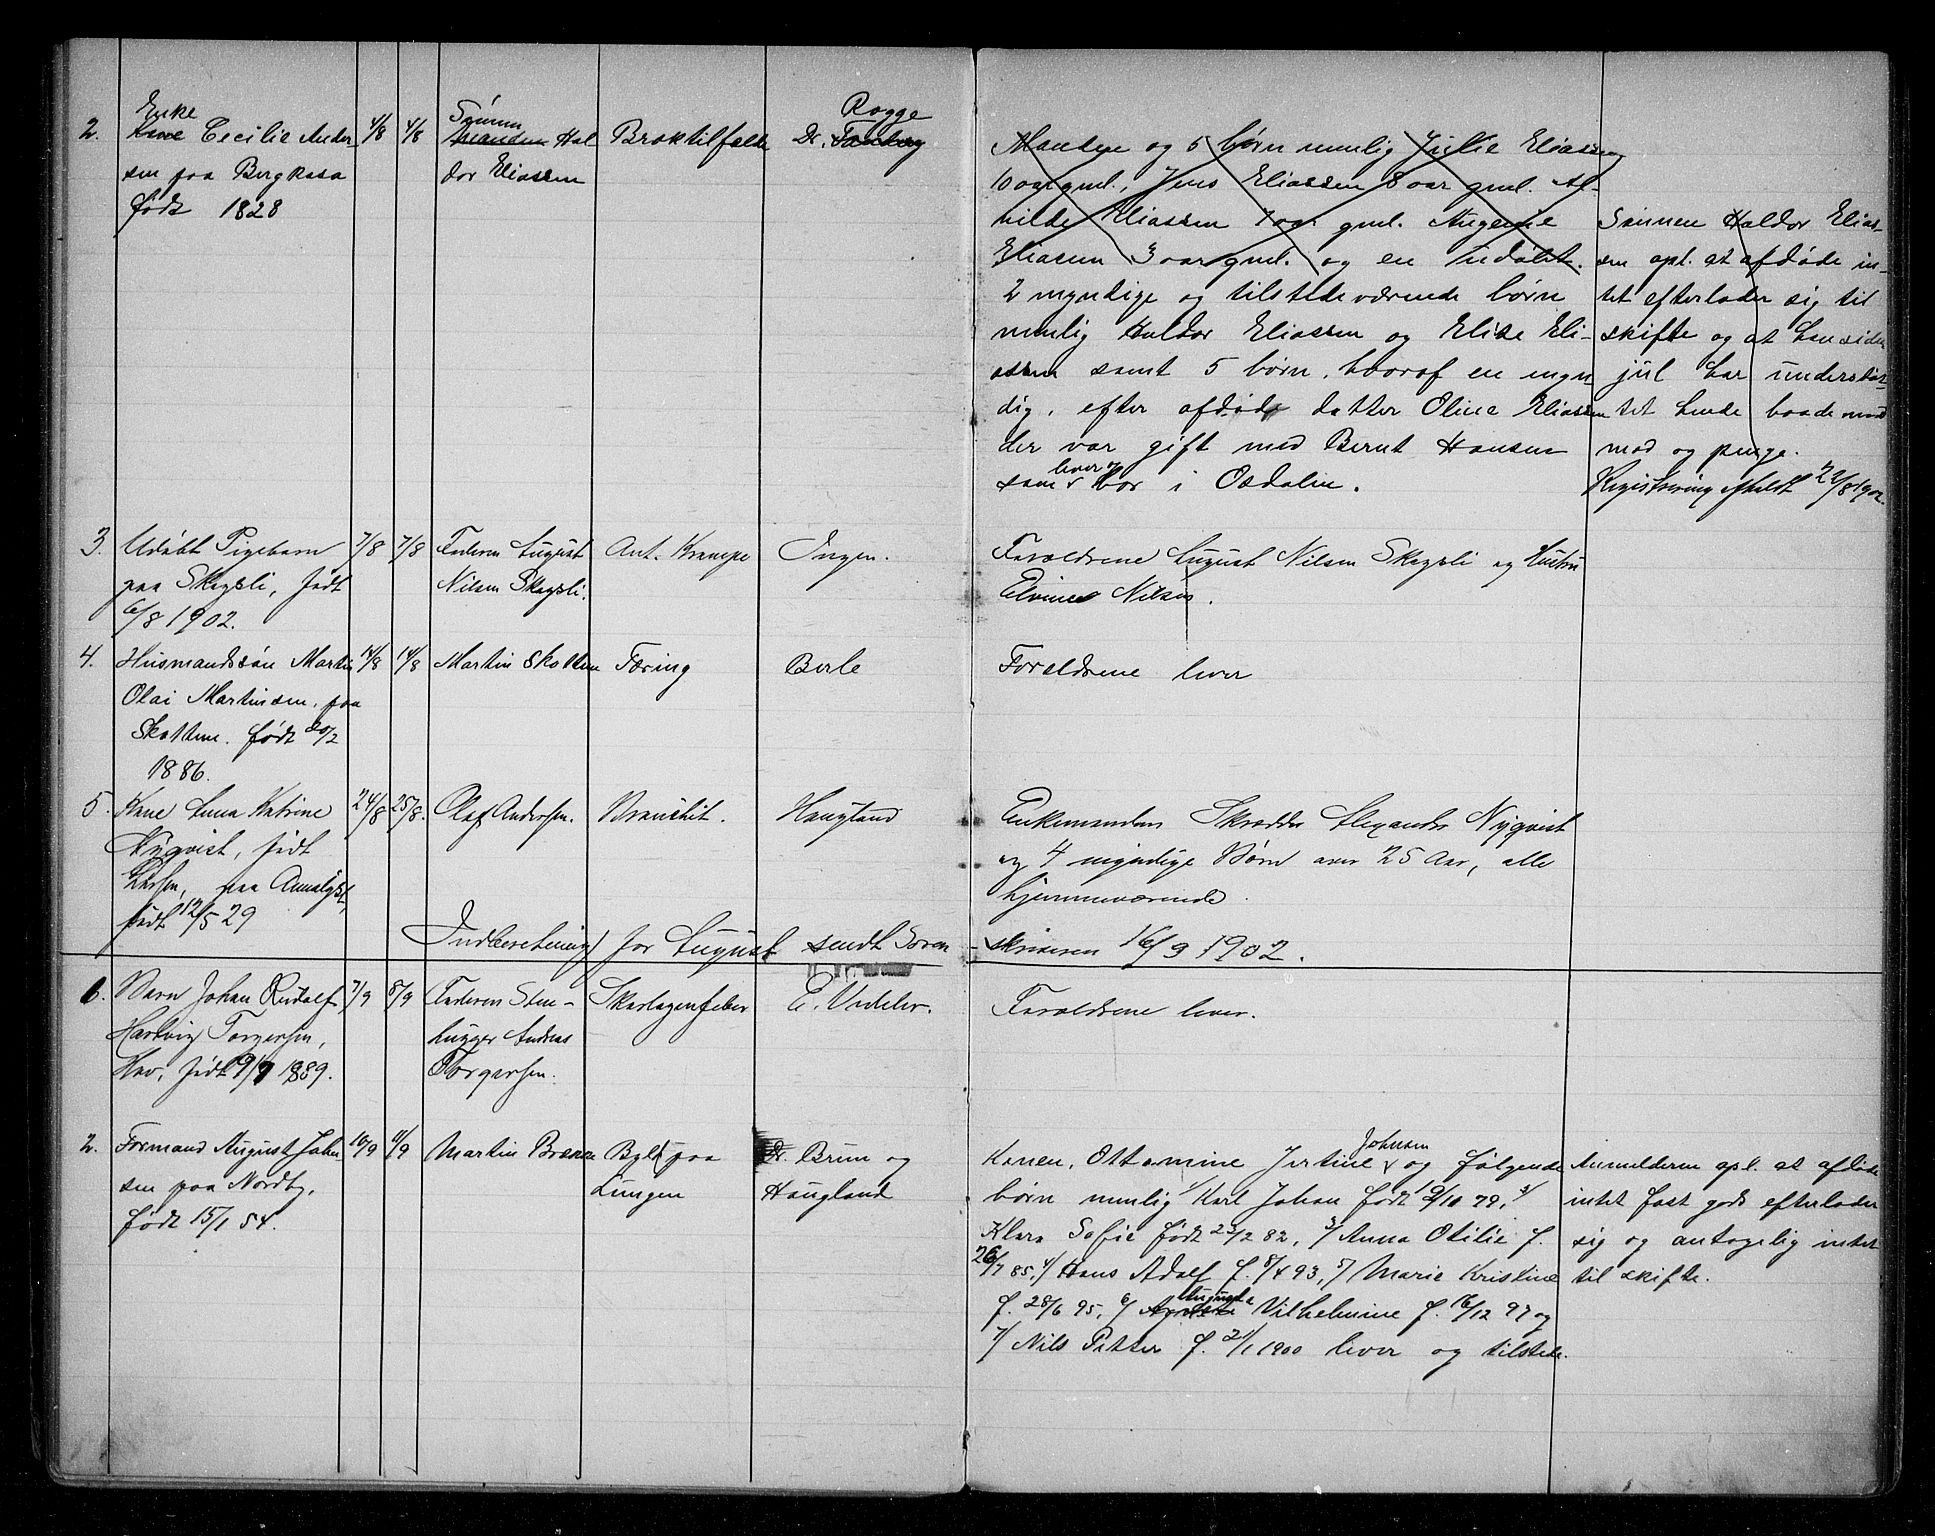 Enke
2. Kone Cecilie Ander
sen paa Bergkasa
født 1828
4/8 4/8
Sønnen
Manden Hal
dor Eliassen
Broktilfælde
Rogge
Dr. Fanberg
Manden og 5 børn nemlig Julie Eliassen
10 aar gml., Jens Eliassen 8 aar gml. Al-
vilde Eliassen 7 aar gml. Augenie
Eliassen 3 aar gml. og en udøbt.
2 myndige og tilstedeværende børn
nemlig Haldor Eliassen og Elise Eli-
assen samt 5 børn, hvoraf en myn-
dig, efter afdøde datter Oline Eliassen
der var gift med Bernt Hansen
som lever og bor i Osdalen.
Sønnen Haldor Elias-
sen opl. at afdøde in-
tet efterlader sig til
skifte og at han siden
jul har understøt-
tet hende baade med
mad og penge.
Registrering afholdt 22/8 1902.
3. Udøbt Pigebarn
paa Skagsli, født
6/8 1902.
7/8 7/8
Faderen August
Nilsen Skagsli.
Ant. Krampe
Ingen.
Forældrene August Nilsen Skagsli og Hustru
Elvine Nilsen.
4. Husmandssøn Martin
Olai Martinsen, paa
Skotten. født 20/2
1886.
14/8 14/8
Martin Skotten
Tæring
Berle
Forældrene lever
5. Kone Anna Katrine
Nyqvist, født
Larsen, paa
født 12/5 29
24/8 25/8.
Olaf Andersen.
Bronchit.
Haugland
Enkemanden Skrædder Alexander Nyqvist
og 4 myndige Børn over 25 Aar, alle
hjemmeværende.
Indberetning for August sendt Soren-
skriveren 16/9 1902.
6. Barn Johan Rudolf
Hartvig Torgersen,
Hov, født 19/7 1889.
7/9 8/9
Faderen Sten-
hugger Andreas
Torgersen.
Skarlagensfeber
E. Vedeler.
Forældrene lever.
2. Formand August Johan-
sen paa Nordby,
født 15/1 54.
10/9 11/9
Martin Brænne
Byld paa
Lungen
Dr. Brun og
Haugland
Johnsen
Konen, Ottomine Jertine og følgende
børn nemlig 1/ Karl Johan født 19/10 79, 2/
Klara Sofie født 23/2 82, 3/ Anna Otilie f.
26/7 85, 4/ Hans Adolf f. 8/4 93, 5/ Marie Kristine
Augusta
f. 28/6 95, 6/ Vilhelmine f. 16/12 97 og
7/ Nils Petter f. 21/1 1900 lever og tilstede.
Anmelderen opl. at afdøde
intet fast gods efterlader
sig og antagelig intet
til skifte.